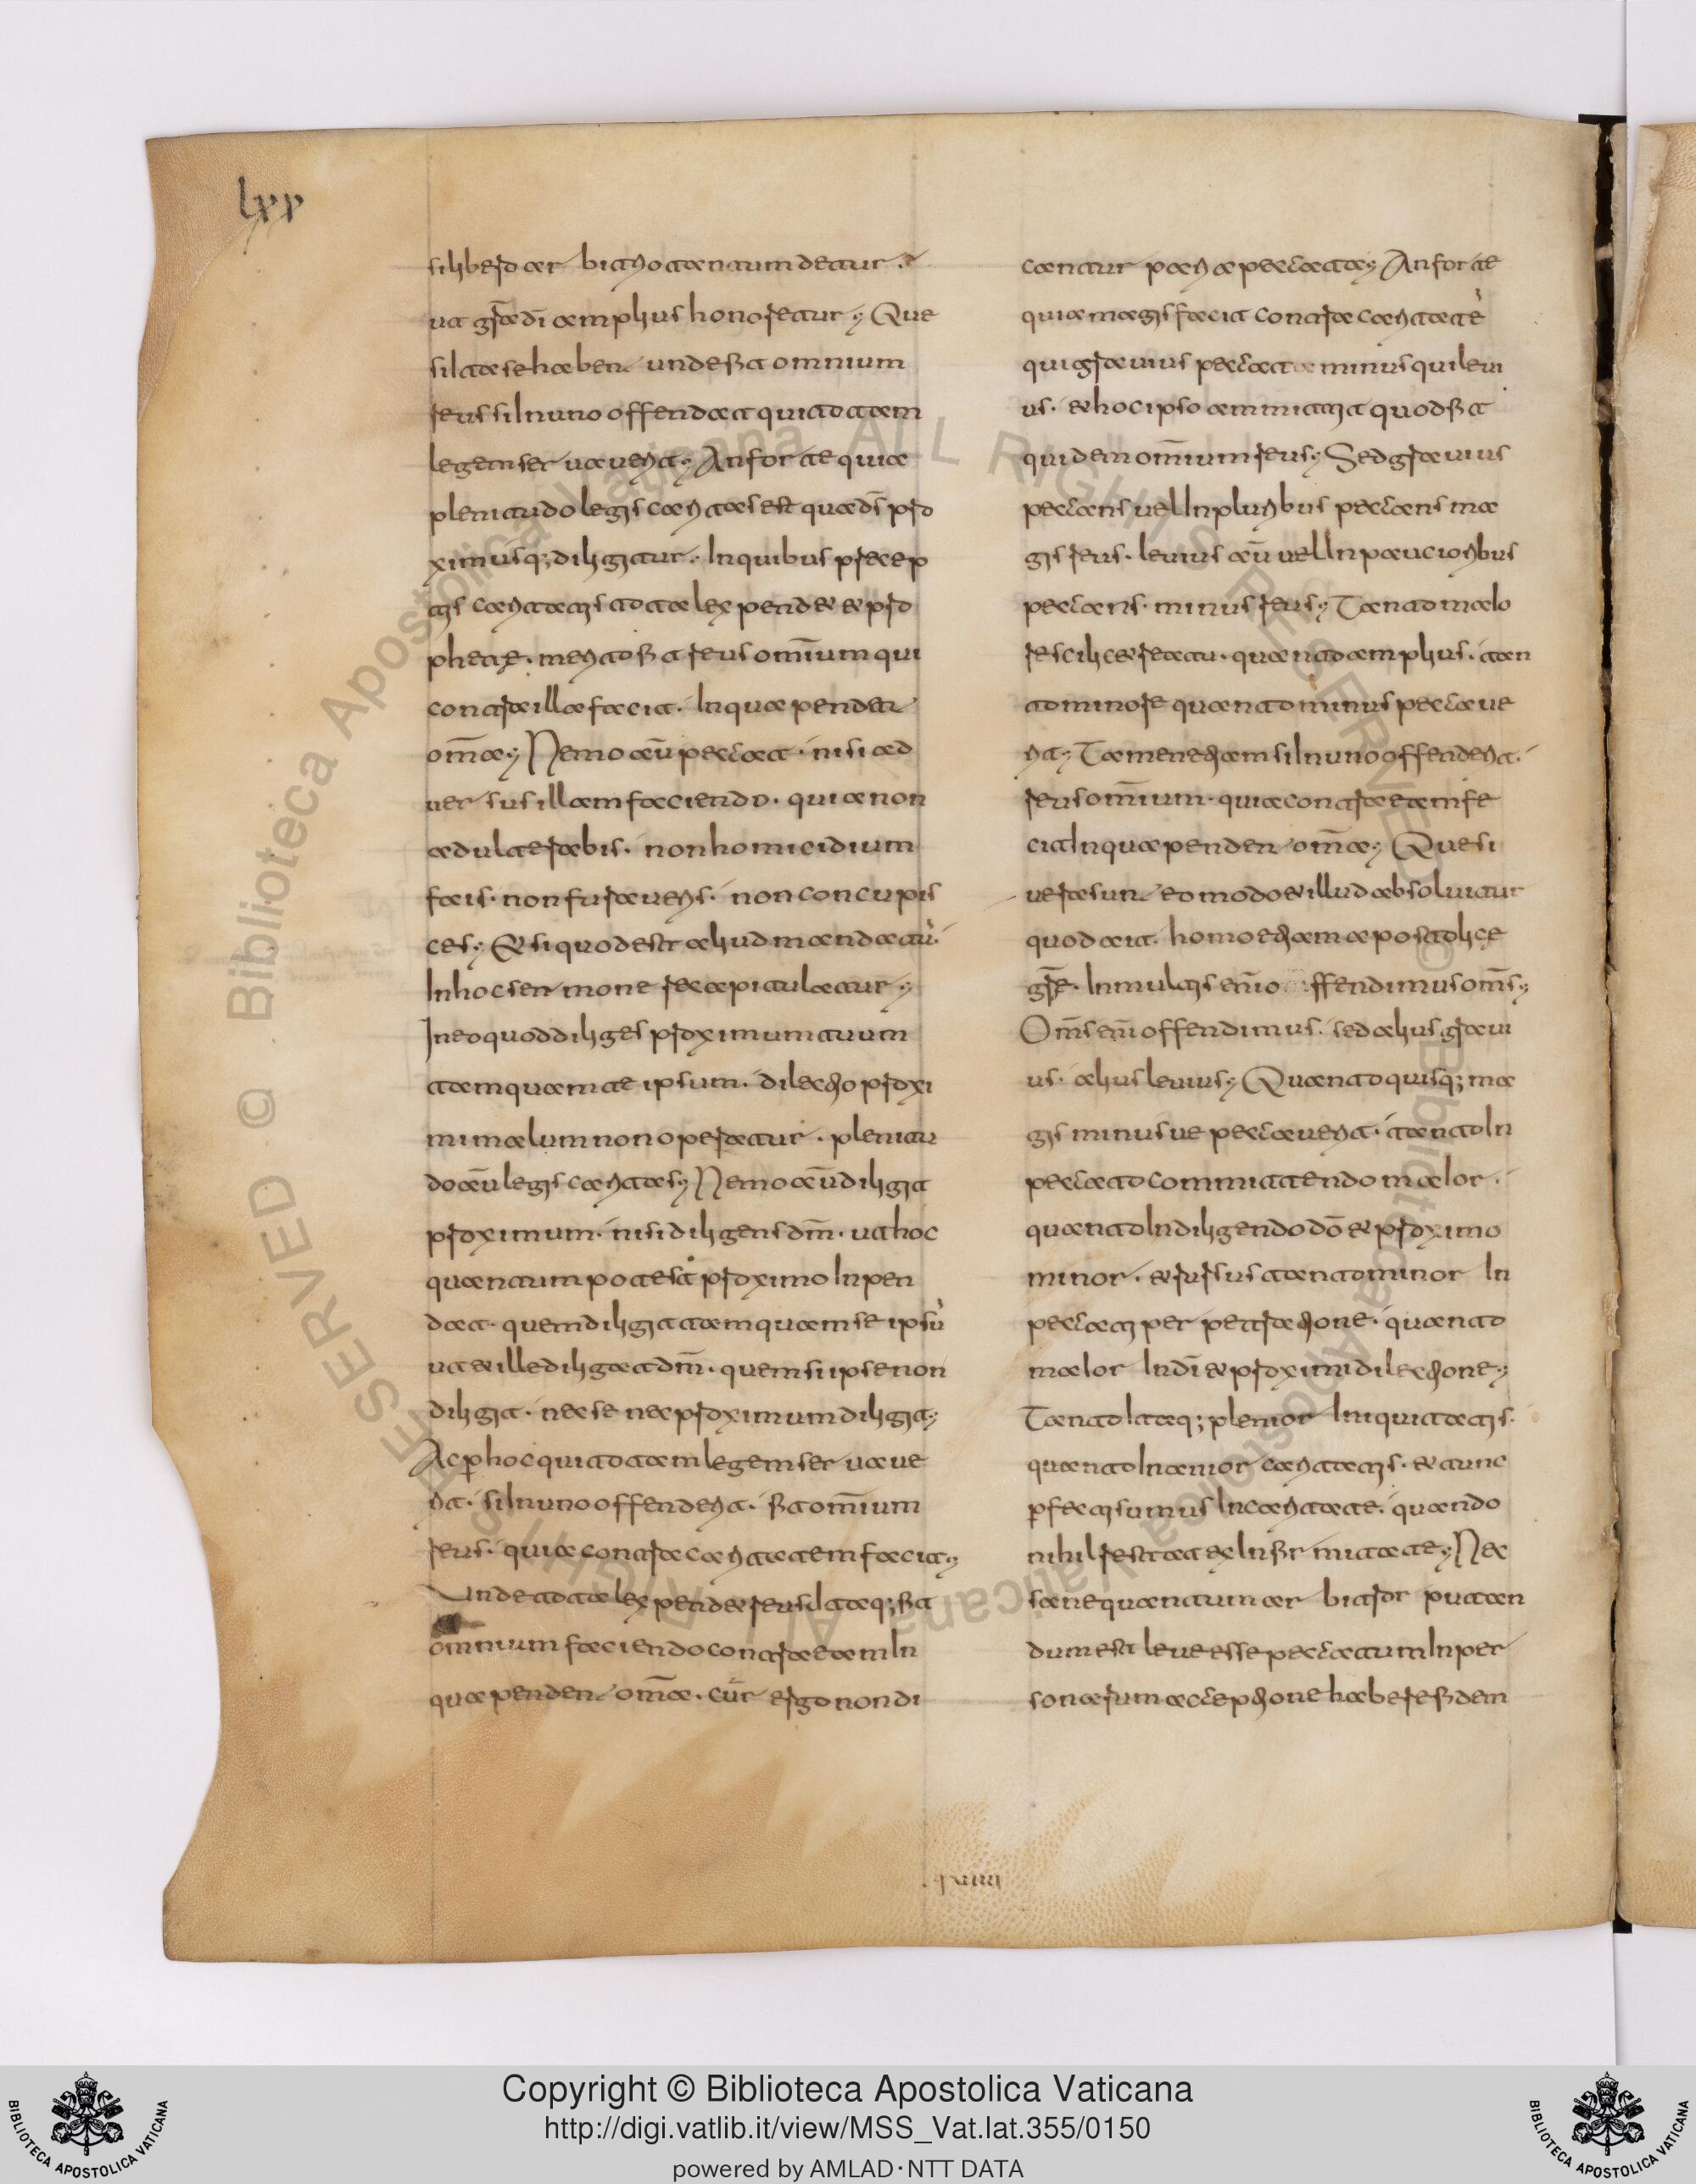 lxx
si liberum arbitrio tantum detur.
ut gr̄a dī amplius honoretur; Que
si ita se haben undefiat omnium
reus si In uno offendat qui totam
legem seruauerit; An forte quia
plenitudo legis caritas est qua dī pro
ximusq; diligitur. In quibus precep
tis caritatis tota lex pendet et pro
phetae. merito fit reus omīum qui
contra illa facit. In qua pendent
om̄a; Nemo aū peccat. nisi ad
uersus illam faciendo. quia non
adulterabis. non homicidium
facis. non furaueris. non concupis
ces; Et si quod est aliud mandatū.
In hoc sermone recapitulatur;
In eo quod diliges proximum tuum
tamquam te ipsum. dilectio proxi
mi malum non operatur. plenitu
do aū legis caritas; Nemo aū diligit
proximum. nisi diligens dm̄. ut hoc
quantum potest proximo Inpen
dat. quem diligit tamquam se ipsū
ut et ille diligat dm̄. quem si ipse non
diligit. nec se nec proximum diligit;
Ac ꝑ hoc qui totam legem seruaue
rit. si In uno offenderit. fit omīum
reus. quia contra caritatem facit;
Unde tota lex pendet reus itaq; fit
omnium faciendo contra eam In
qua penden om̄a. cur ergo non di
cantur paria peccata; An forte
quia magis facit contra caritatē
qui grauius peccat minus qui leui
us. et hoc ipso ammittit quod fit
quidem om̄ium reus; Sed grauius
peccans uel In pluribus peccans ma
gis reus. leuius aū uel In paucioribus
peccans. minus reus; Tanto maio
re scilicet reatu. quanto amplius. tan
to minore quanto minus peccaue
rit; Tamen etiam si In uno offenderit.
reus om̄ium. quia contra eam fe
cit In qua penden om̄a; Que si
uera sun eo modo et illud absoluitur
quod ait. homo etiam apostolice
gr̄e. In multis enī offendimus om̄s;
Om̄s enī offendimus. sed alius graui
us. alius leuius; Quanto quisq; ma
gis minusue peccauerit. tanto In
peccato committendo maior.
quanto In diligendo dō et proximo
minor. et rursus tanto minor In
peccati perpetratione. quanto
maior In dī et proximi dilectione;
Tanto Itaq; plenior Iniquitatis.
quanto Inanior caritatis. et tunc
ꝑfecti sumus In caritate. quando
nihil restat ex Infirmitate; Nec
sane quantum arbitror putan
dum est leue esse peccatum In per
sonarum acceptione habere fidem
qxiiii
Copyright © Biblioteca Apostolica Vaticana
http://digi.vatlib.it/view/MSS_Vat.lat.355/0150
powered by AMLAD·NTT DATA